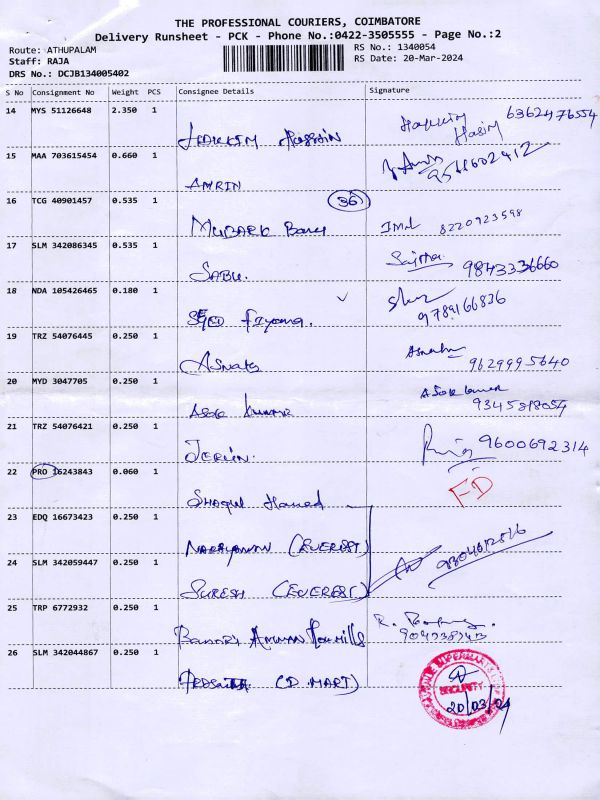 THE PROFESSIONAL COURIERS, COIMBATORE
Delivery Runsheet - PCK - Phone No.:0422-3505555 - Page No.:2
Route: ATHUPALAM
RS No.: 1340054
Staff: RAJA
RS Date: 20-Mar-2024
DRS No.: DCJB134005402
S No Consignment No Weight PCS Consignee Details Signature
14 MYS 51126648 2.350 1
6362476554
15 MAA 703615454 0.660 1
AMRIN
16 TCG 40901457 0.535 1 36
MUBARK Banu 8220923598
17 SLM 342086345 0.535 1
SABU. 9843336660
18 NDA 105426465 0.180 1
9789166836
19 TRZ 54076445 0.250 1
9629995640
20 MYD 3047705 0.250 1
Asok kumar 9345818054
21 TRZ 54076421 0.250 1
JERLIN. 9600692314
22 PRO 16243843 0.060 1
FD
SHAQUL Hameed
23 EDQ 16673423 0.250 1
NARAYANAN (EVEREST)
24 SLM 342059447 0.250 1
SURESH (EVEREST)
25 TRP 6772932 0.250 1
BANARI AMMAN
26 SLM 342044867 0.250 1
(D MART)
SECURITY
20/03/24